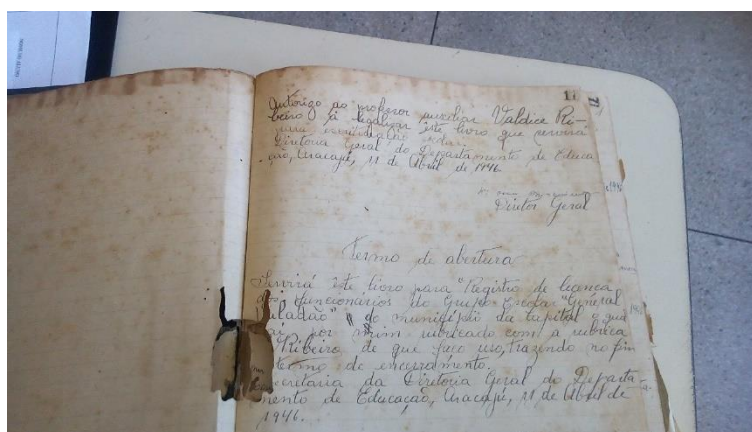 11
Autorizo ao professor auxiliar Valdice Ri-
beiro à legalizar este livro que servirá
para
Diretoria Geral do Departamento de Educa
ção, Aracaju, 11 de Abril de 1946.
Diretor Geral
Termo de abertura
Servirá este livro para "Registro de licença
dos funcionários do Grupo Escolar "General
Valadão" do município da Capital o qual
vai por mim rubricado com a rubrica
Ribeiro de que faço uso, trazendo no fim
termo de encerramento.
Secretaria da Diretoria Geral do Departa-
mento de Educação, Aracaju, 11 de Abril de
1946.